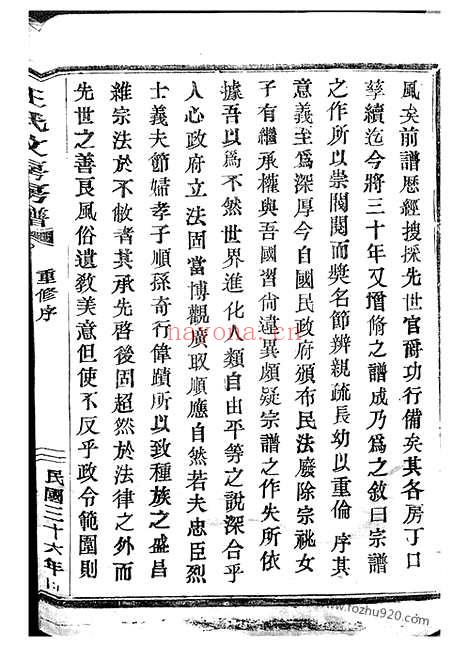 風矣前譜歷經搜採先世官爵功行備矣其各房丁口
孳續迄今將三十年又增修之譜成乃爲之敘曰宗譜
之作所以崇閥閱而獎名節辨親疏長幼以重倫序其
意義至爲深厚今自國民政府頒布民法廢除宗祧女
子有繼承權與吾國習尚違異頗疑宗譜之作失所依
據吾以爲不然世界進化人類自由平等之說深合乎
人心政府立法固當博觀廣取順應自然若夫忠臣烈
士義夫節婦孝子順孫奇行偉蹟所以致種族之盛昌
維宗法於不敝者其承先啓後固超然於法律之外而
先世之善良風俗遺敎美意但使不反乎政令範圍則
王氏文房房譜
重修序
民國三十六年
nayona.cn
www.fozhu920.com